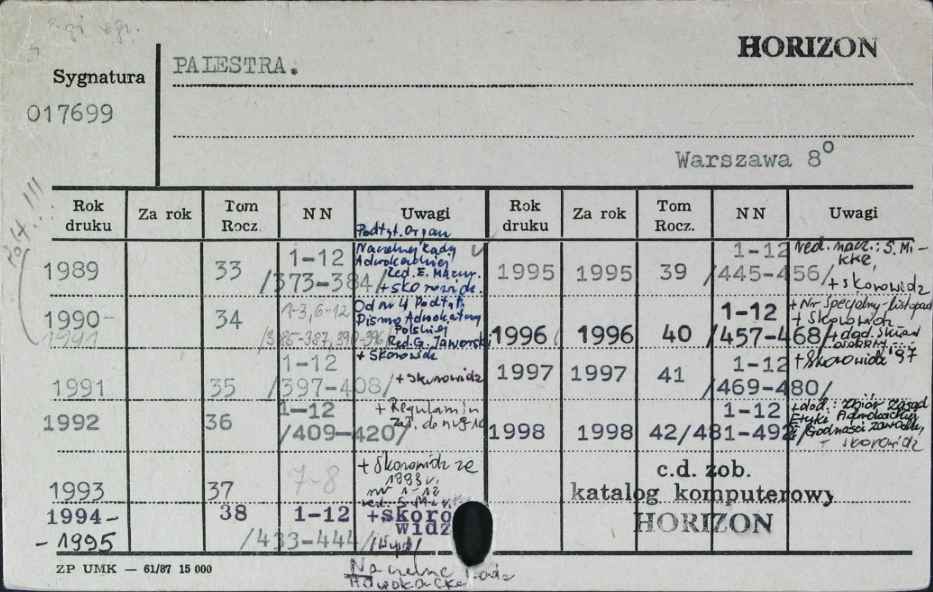 HORIZON
Sygnatura
PALESTRA.
017699
Warszawa 8°
Rok druku Za rok Tom Rocz. NN Uwagi Rok druku Za rok Tom Rocz. NN Uwagi
Podtyt. Organ
Naczelnej Rady
Adwokackiej
Red. E. Mazur.
+ skorowidz.
1989 33 1-12
/373-384/
1995 1995 39 1-12
/445-456/
red. nacz.: S. Mi-
kke,
+ skorowidz
1990-
1991
34 1-3, 6-12
/385-387, 390-396/
Od nr 4 Podtyt.
Pismo Adwokatury
Polskiej
Red. G. Jaworski
+ Skorowidz
1996 1996 40 1-12
/457-468/
+ Nr Specjalny-listopad
+ Skorowidz
+ dod.
1991 35 1-12
/397-408/
+ Skorowidz
1997 1997 41 1-12
/469-480/
+ Skorowidz '97
1992 36 1-12
/409-420/
+ Regulamin
do nr 9-10
1998 1998 42 1-12
/481-492/
+ dod.: Zbiór Zasad
Etyki Adwokackiej
i Godności Zawodu,
+ skorowidz
1993 37 7-8
+ Skorowidz ze
1993 r.
nr 1-12
red. S. Mikke
c.d. zob.
katalog komputerowy
HORIZON
1994-
-1995
38 1-12
/433-444/
+skoro
widz
Naczelna Rada
Adwokacka
ZP UMK — 61/87 15 000